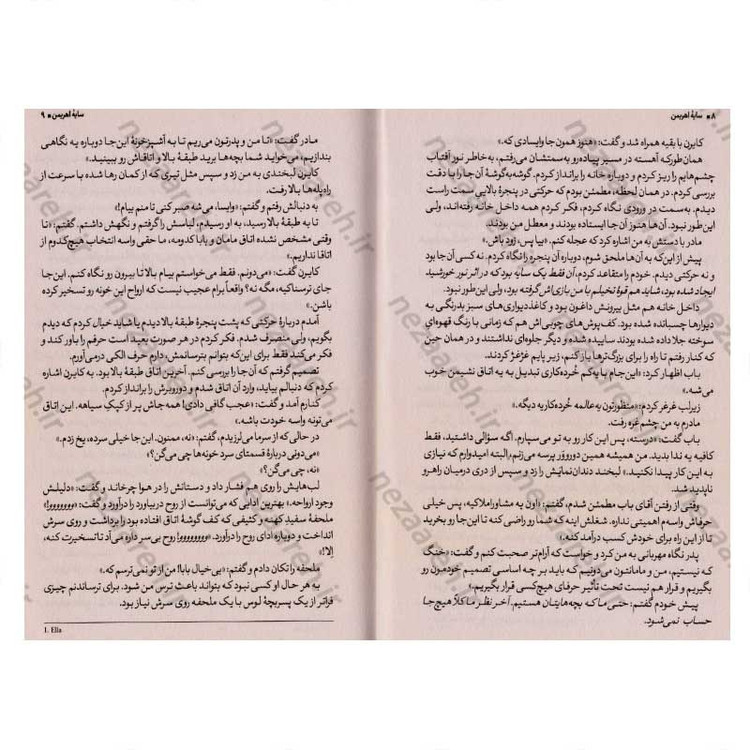 ۸ ■ سایهٔ اهریمن
کابرن با بقیه همراه شد و گفت: «هنوز همون جا وایسادی که.»
همان‌طورکه آهسته در مسیر پیاده‌رو به سمتشان می‌رفتم، به‌خاطر نور آفتاب
چشم‌هایم را ریز کردم و دوباره خانه را برانداز کردم. گوشه‌به‌گوشهٔ آن‌جا را با دقت
بررسی کردم. در همان لحظه، مطمئن بودم که حرکتی در پنجرهٔ بالایی سمت راست
دیدم. به‌سمت در ورودی نگاه کردم، فکر کردم همه داخل خانه رفته‌اند، ولی
این‌طور نبود. آن‌ها هنوز آن جا ایستاده بودند و معطل من بودند.
مادر با دستش به من اشاره کرد که عجله کنم. «بیا پس، زود باش.»
پیش از این‌که به آن‌ها ملحق شوم، دوباره آن پنجره را نگاه کردم. نه کسی آن جا بود
و نه حرکتی دیدم. خودم را متقاعد کردم، آن فقط یک سایه بود که در اثر نور خورشید
ایجاد شده بود، شاید هم قوهٔ تخیلم با من بازی‌اش گرفته بود، ولی این‌طور نبود.
داخل خانه هم مثل بیرونش داغون بود و کاغذدیواری‌های سبز بدرنگی به
دیوارها چسبانده شده بود. کف‌پوش‌های چوبی‌اش هم که زمانی با رنگ قهوه‌ای
سوخته جلا داده شده بودند ساییده شده و دیگر جلوه‌ای نداشتند و در همان حین
که کنار رفتم تا راه را برای بزرگ‌ترها باز کنم، زیر پایم غژغژ کردند.
باب اظهار کرد: «این‌جام با یه‌کم خُرده‌کاری تبدیل به یه اتاق نشیمن خوب
می‌شه.»
زیرلب غرغر کردم: «منظورتون یه عالمه خُرده‌کاریه دیگه.»
مادرم به من چشم‌غره رفت.
باب گفت: «درسته، پس این کار رو به تو می‌سپارم. اگه سؤالی داشتید، فقط
کافیه یه ندا بدید. من همیشه همین دوروبر پرسه می‌زنم، البته امیدوارم که نیازی
به این کار پیدا نکنید.» لبخند دندان‌نمایش را زد و سپس از دری درمیان راهرو
ناپدید شد.
وقتی از رفتن آقای باب مطمئن شدم، گفتم: «اون یه مشاور املاکیه، پس خیلی
حرفاش واسه‌م اهمیتی نداره. شغلش اینه که شما رو راضی کنه تا این‌جا رو بخرید
تا از این راه برای خودش کسب درآمد کنه.»
پدر نگاه مهربانی به من کرد و خواست که آرام‌تر صحبت کنم و گفت: «خنگ
که نیستیم، من و مامانتون می‌دونیم که باید بر چه اساسی تصمیم خودمون رو
بگیریم و قرار هم نیست تحت تأثیر حرفای هیچ‌کسی قرار بگیریم.»
پیش خودم گفتم: حتی ما که بچه‌هایتان هستیم. آخر نظر ما کلاً هیچ جا
حساب نمی‌شود.
سایهٔ اهریمن ■ ۹
مادر گفت: «تا من و پدرتون می‌ریم تا به آشپزخونهٔ این‌جا دوباره یه نگاهی
بندازیم، می‌خواید شما بچه‌ها برید طبقهٔ بالا و اتاقاش رو ببینید.»
کابرن لبخندی به من زد و سپس مثل تیری که از کمان رها شده با سرعت از
راه‌پله‌ها بالا رفت.
به دنبالش رفتم و گفتم: «وایسا، می‌شه صبر کنی تا منم بیام!»
تا به طبقهٔ بالا رسید، به او رسیدم، لباسش را گرفتم و نگهش داشتم. گفتم: «تا
وقتی مشخص نشده اتاق مامان و بابا کدومه، ما حقی واسه انتخاب هیچ‌کدوم از
اتاقا نداریم.»
کابرن گفت: «می‌دونم. فقط می‌خواستم بیام بالا تا بیرون رو نگاه کنم. این‌جا
جای ترسناکیه، مگه نه؟ واقعاً برام عجیب نیست که ارواح این خونه رو تسخیر کرده
باشن.»
آمدم دربارهٔ حرکتی که پشت پنجرهٔ طبقهٔ بالا دیدم یا شاید خیال کردم که دیدم
بگویم، ولی منصرف شدم. فکر کردم در هر صورت بعید است حرفم را باور کند و
فکر می‌کند فقط برای این‌که بتوانم بترسانمش، دارم حرف الکی درمی‌آورم.
تصمیم گرفتم که آن جا را بررسی کنم. آخرین اتاق طبقهٔ بالا بود. به کابرن اشاره
کردم که دنبالم بیاید، وارد آن اتاق شدم و دوروبرش را برانداز کردم.
کنارم آمد و گفت: «عجب گافی دادی! همه‌جاش پر از کپکِ سیاهه. این اتاق
می‌تونه واسه خودت باشه.»
در حالی که از سرما می‌لرزیدم، گفتم: «نه، ممنون. این‌جا خیلی سرده، یخ زدم.»
«می‌دونی دربارهٔ قسمتای سرد خونه‌ها چی می‌گن؟»
«نه، چی می‌گن؟»
لب‌هایش را روی هم فشار داد و دستانش را در هوا چرخاند و گفت: «دلیلش
وجود ارواحه.» بهترین ادایی که می‌توانست از روح دربیاورد را درآورد و گفت: «وووووووو!»
ملحفهٔ سفیدِ کهنه و کثیفی که کف گوشهٔ اتاق افتاده بود را برداشت و روی سرش
انداخت و دوباره ادای روح را درآورد. «وووووووو! روح بی‌سر داره می‌آد تا تسخیرت کنه،
اِلا!»
ملحفه را تکان دادم و گفتم: «بی‌خیال بابا! من از تو نمی‌ترسم که.»
به هر حال او کسی نبود که بتواند باعث ترس من شود. برای ترساندنم چیزی
فراتر از یک پسربچهٔ لوس با یک ملحفه روی سرش نیاز بود.
1. Ella
nezaareh.ir